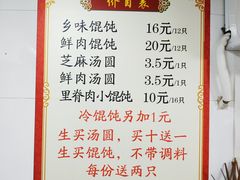 价目表
乡味馄饨 16元/12只
鲜肉馄饨 20元/12只
芝麻汤圆 3.5元/1只
鲜肉汤圆 3.5元/1只
里脊肉小馄饨 10元/16只
冷馄饨另加1元
生买汤圆 买十送一
生买馄饨 不带调料
每份送两只